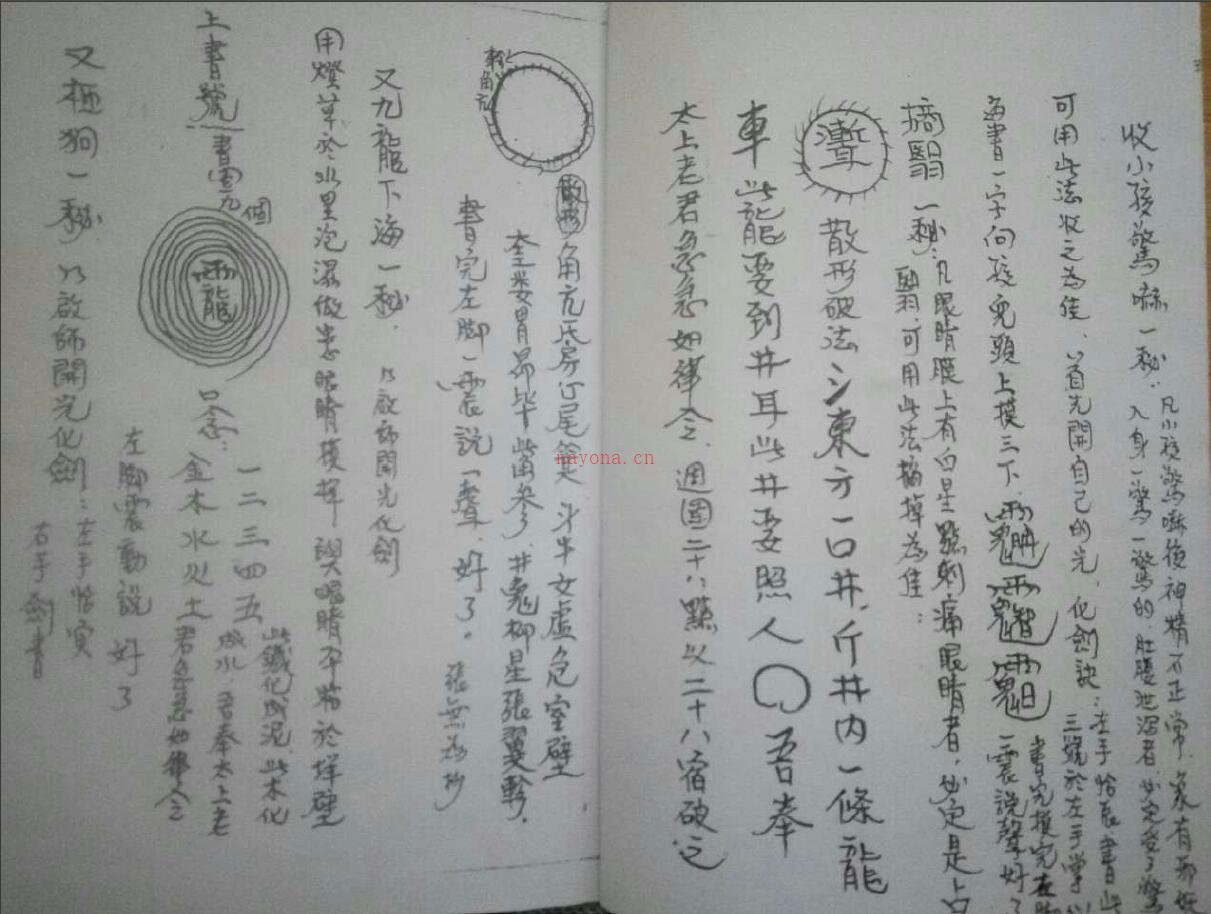 收小孩驚嚇一秘：凡小孩驚嚇後神精不正常，象有邪妖
入身一驚一驚的肚腹泄瀉者，必定受了驚
可用此法收之為佳、首先開自己的光，化劍訣：左手恰辰書此
三號於左手掌
每書一字向孩兒頭上摸三下。
書完摸完左脚
一震說聲好了
摘翳一秘：凡眼睛膜上有白星點刺痛眼睛者，必定是占
翳，可用此法摘掉為佳：
散形破法：東方一口井，斤井內一條龍
車此龍要到井耳此井要照人 吾奉
太上老君急急如律令，週圍二十八點以二十八宿破之
散形
角亢氐房心尾箕 斗牛女虛危室壁
奎婁胃昴毕觜参，井鬼柳星張翼軫，
書完左脚一震説一聲，好了。
張無為抄
又九龍下海一秘，以啟師開光化劍
用燈草於水里泡濕做患眼睛摸擇與眼睛平粘於墻壁
上書號 書圈九個
雨龍
口念：
一二三四五
金木水火土
此鐵化成泥，此木化
成水，吾奉太上老
君急急如律令
左脚震動說 好了
又柩狗一秘，以啟師開光化劍：左手恰寅
右手劍書
nayona.cn